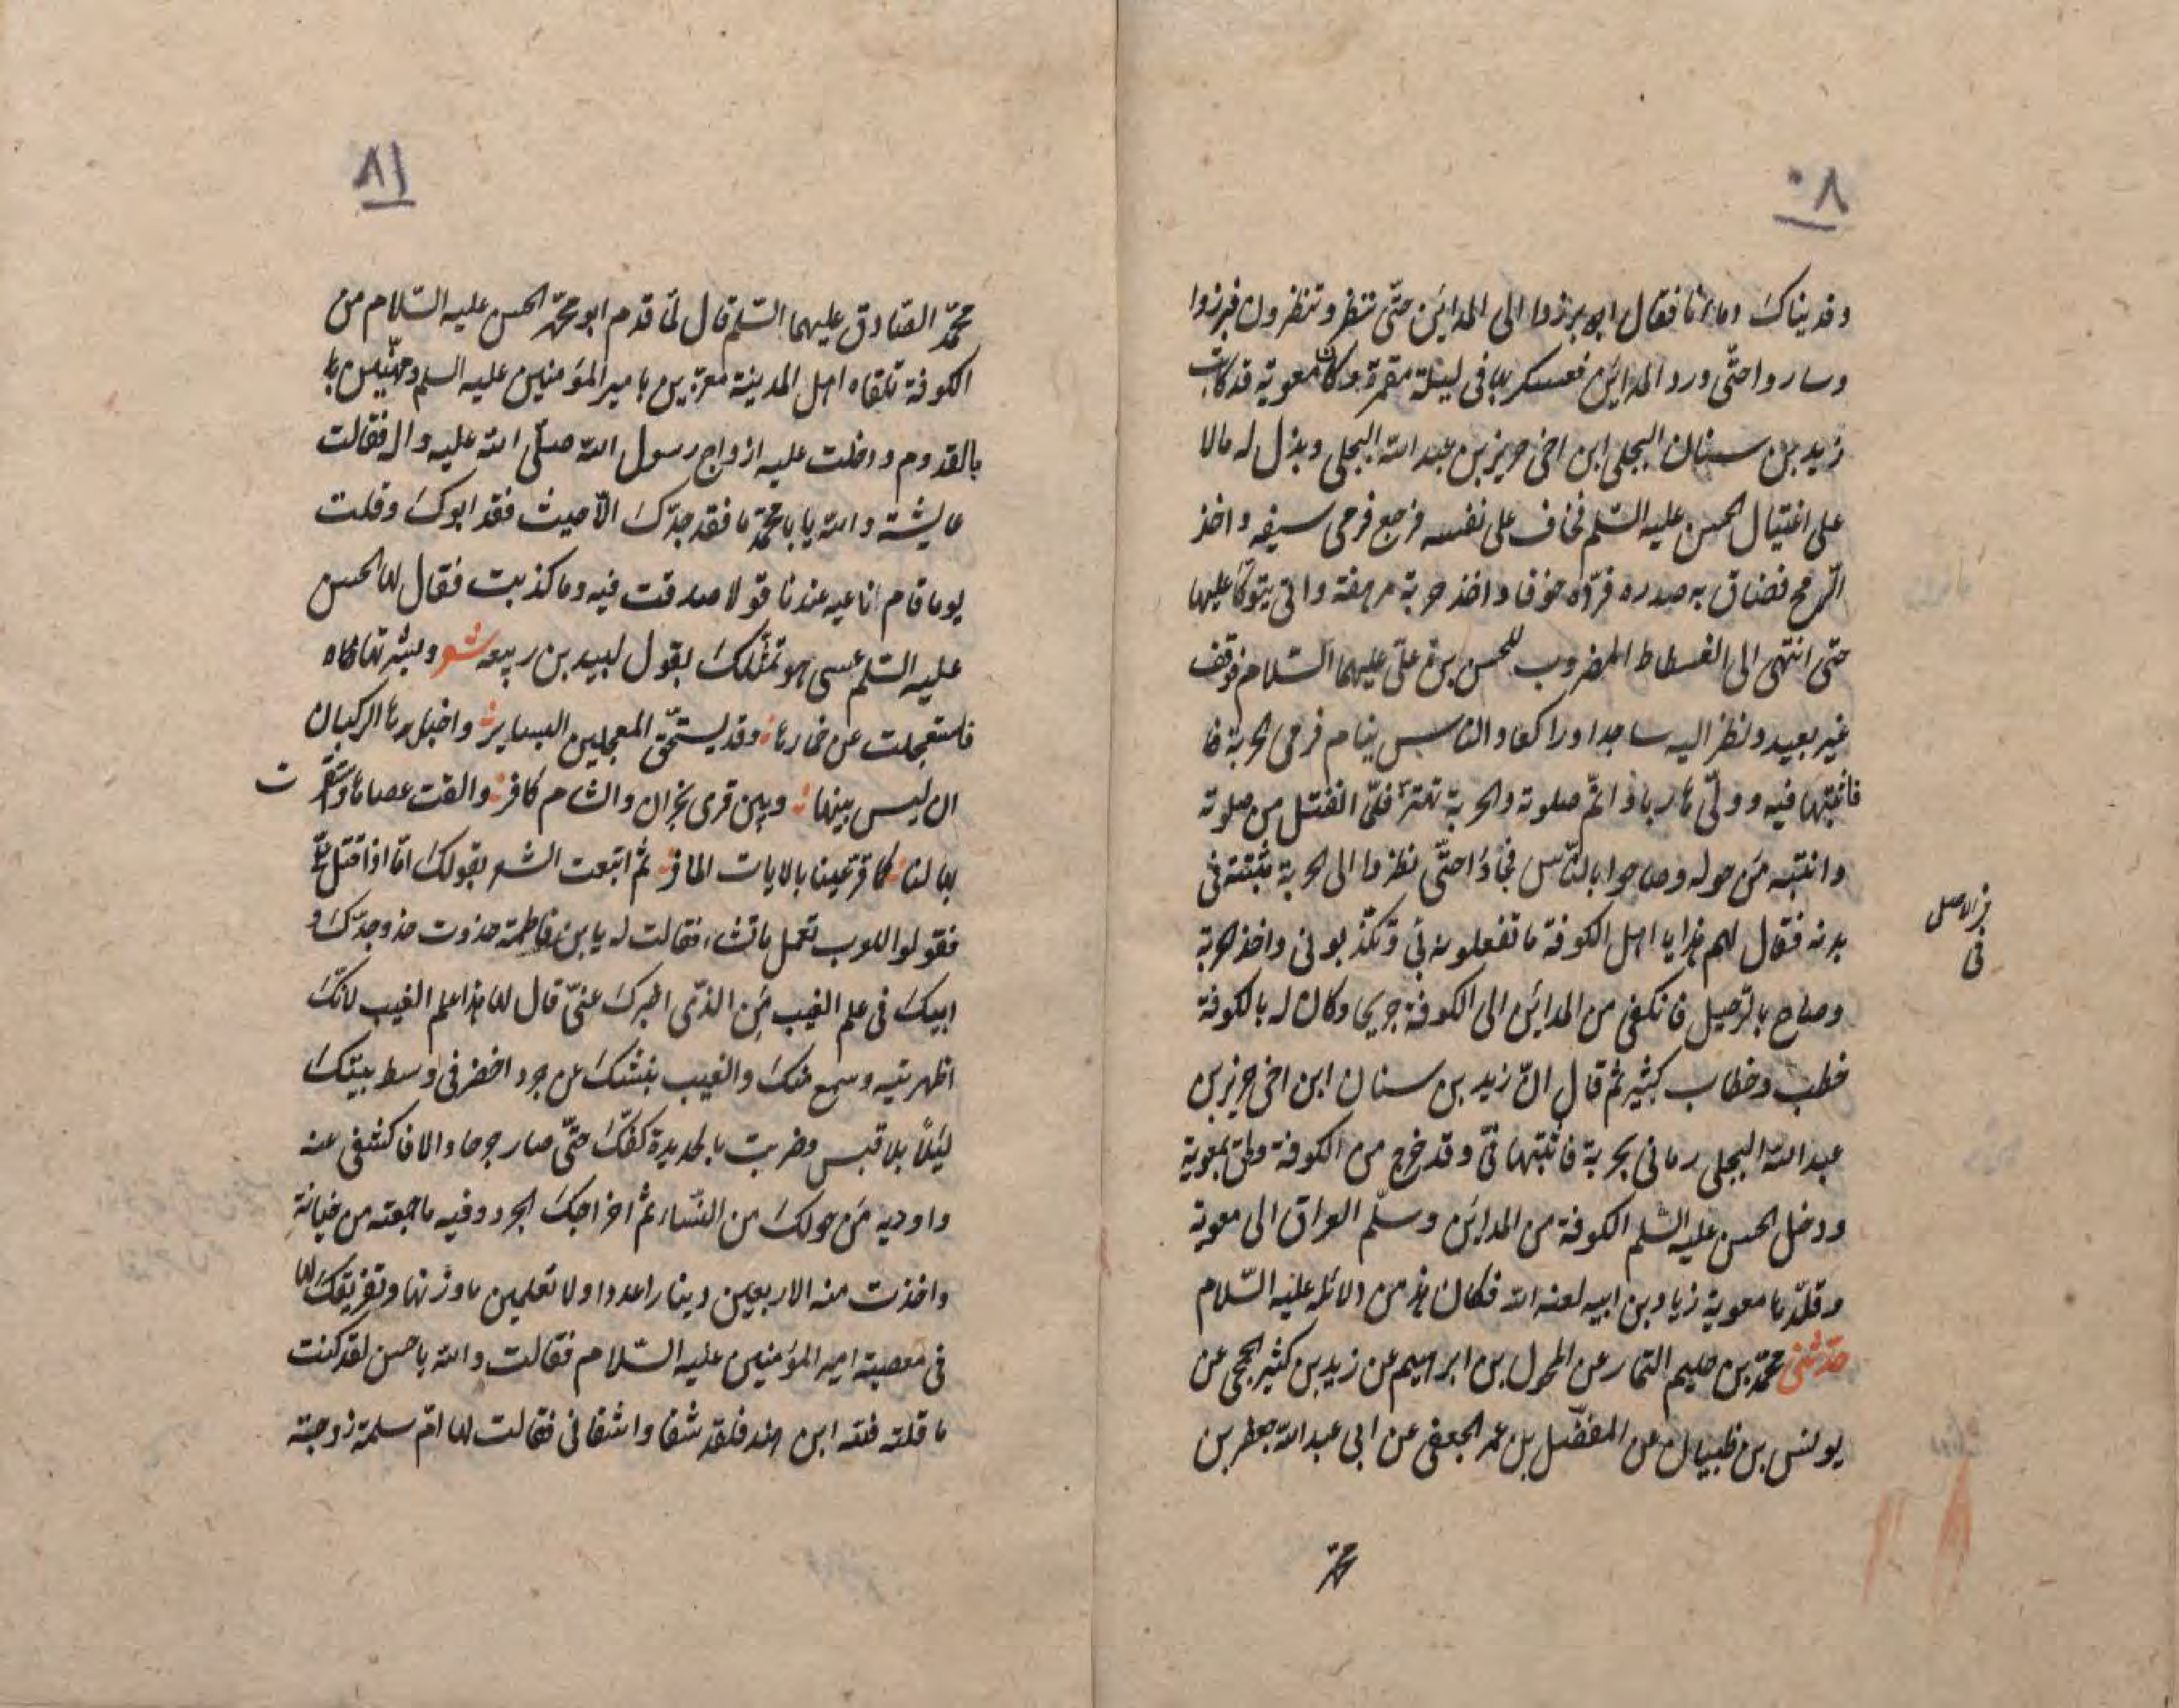 ٨٠
وفديناك دماءنا فقال ابرزوا الى المداين حتّى ننظر وتنظرون فبرزوا
وساروا حتّى ورد المداين فعسكر بها فى ليلة مقمرة وكان معوية قد كاتب
زيد بن سنان البجلى ابن اخى جرير بن عبد الله البجلى وبذل له مالا
على اغتيال الحسن عليه السّلم فخاف على نفسه فرجع فرمى سيفه واخذ
الرّمح فضاق به صدره فردّه خوفا واخذ حربة مرهفة واتى يتوكّا عليها
حتى انتهى الى الفسطاط المضروب للحسن بن علىّ عليهما السّلام فوقف
غير بعيد ونظر اليه ساجدا وراكعا والنّاس نيام فرمى الحربة فا
فاثبتها فيه وولّى هاربا فاتمّ صلوته والحربة تهتزّ فلمّا انفتل من صلوته
وانتبه من حوله وصاحوا بالنّاس فجاؤا حتّى نظروا الى الحربة مثبتة فى
بدنه فقال لهم هذا يا اهل الكوفة ما تفعلون بى وتكذّبونى واخذ الحربة
وصاح بالرّحيل فانكفى من المداين الى الكوفة جريحا وكان له بالكوفة
خطب وخطاب كثير ثم قال انّ زيد بن سنان ابن اخى جرير بن
عبد الله البجلى رمانى بحربة فاثبتها فىّ وقد خرج من الكوفة ولحق بمعوية
ودخل الحسن عليه السّلم الكوفة من المداين وسلّم العراق الى معوية
وقلّدها معوية زياد بن ابيه لعنه الله فكان هذا من دلائله عليه السّلام
حدّثنى محمّد بن حليم التمار عن المخول بن ابراهيم عن زيد بن كثير الجمحى عن
يونس بن ظبيان عن المفضّل بن عمر الجعفى عن ابى عبد الله جعفر بن
محمّد
فى الاصل
فى
٨١
محمّد الصّادق عليهما السّلم قال لمّا قدم ابو محمّد الحسن عليه السّلام من
الكوفة تلقاه اهل المدينة معزّين بامير المؤمنين عليه السلم ومهنّئين با
بالقدوم ودخلت عليه ازواج رسول الله صلّى الله عليه واله فقالت
عايشة والله يا با محمّد ما فقد جدّك الّا حيث فقد ابوك وقلت
يوما قام ناعيه عندنا قولا صدقت فيه وما كذبت فقال لها الحسن
عليه السّلم عسى هو تمثّلك بقول لبيد بن ربيعه شعر وبشّرتها
فاستعجلت عن خمارها وقد يستخفّ المعجلين البساير واخبرها الركبان
ان ليس بينها وبين قرى نجران والشام كافر والقت عصاها واستقرّ ت
بها لنا كما قرّ عينا بالايات المسافر ثم اتبعت الشعر بقولك امّا اذا قتل علىّ
فقولوا للعرب تعمل ما تشاء فقالت له يا بن فاطمة حذوت حذو جدّك و
ابيك فى علم الغيب من الذّى اخبرك عنىّ قال لها هذا علم الغيب لانّك
اظهرتيه وسمع منك والغيب نبشك عن جرد اخضر فى وسط بيتك
ليلا بلا قبس وضربت بالحديدة كفّك حتّى صار جرحا والا فاكشفى عنه
واوريه من حولك من النّساء ثم اخراجك الجرد وفيه ما جمعته من خيانة
واخذت منه الاربعين دينارا عددا ولا تعلمين ما وزنها وتفريقك لها
فى مبغضية امير المؤمنين عليه السّلام فقالت والله يا حسن لقد كنت
ما قلته فلله ابن هند فلقد شفا واشفانى فقالت لها امّ سلمة زوجة